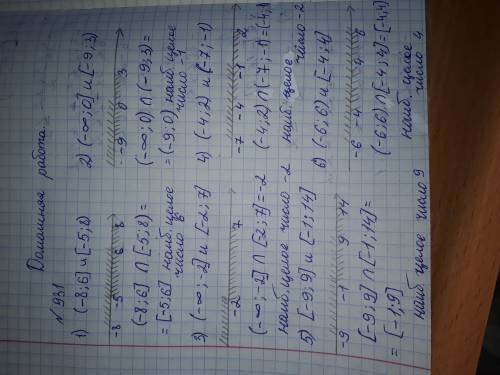 Домашняя работа.
N 931
1) (-8;6] и [-5;8)
-8 -5 6 8
(-8;6] ∩ [-5;8) =
= [-5;6] наиб. целое
число 6
2) (-∞;0) и [-9;3)
-9 0 3
(-∞;0) ∩ (-9;3) =
= (-9;0) наиб. целое
число -1
3) (-∞;-2] и [-2;7]
-2 7
(-∞;-2] ∩ [-2;7] = -2
наиб целое число -2
4) (-4;2) и (-7;-1)
-7 -4 -1 2
(-4;2) ∩ (-7;-1) = (-4;-1)
наиб. целое
число -2
5) [-9;9] и [-1;14]
-9 -1 9 14
[-9;9] ∩ [-1;14] =
= [-1;9]
наиб целое число 9
6) (-6;6) и [-4;4]
-6 -4 4 6
(-6;6) ∩ [-4;4] = [-4;4]
наиб. целое
число 4